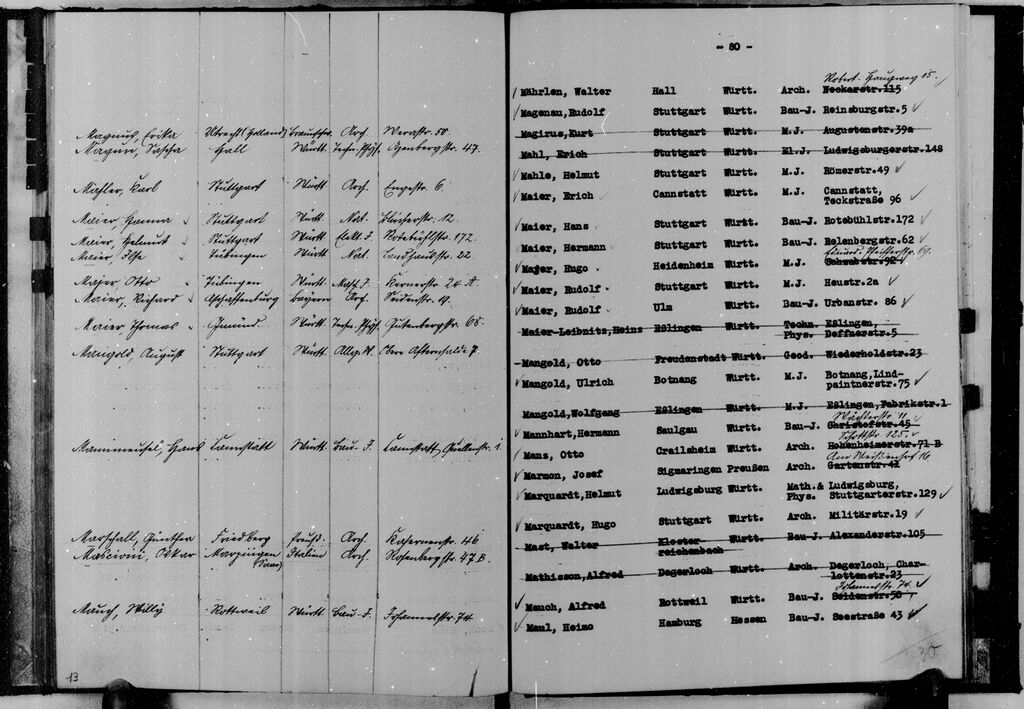 Magnus, Erika Utrecht (Holland) Arch. Werastr. 50.
Sascha Hall Württ. 47.
Mahler, Karl Stuttgart Württ. Arch. Engestr. 6.
Maier, Hanna Stuttgart Württ. Nat. 12.
Maier, Helmut Stuttgart Württ. Elekt. J. Rotebühlstr. 172.
Maier, Ilse Tübingen Württ. Nat. Landhausstr. 22
Maier, Otto Tübingen Württ. Masch. J. Kernerstr. 24 A.
Maier, Richard Aschaffenburg Bayern Arch. Seidenstr. 19.
Maier Thomas Gmünd Württ. Gutenbergstr. 68.
Mangold, August Stuttgart Württ. Obere 7.
Hans Cannstatt Württ. Bau-J. Cannstatt, 1.
Marschall, Günther Friedberg Preuß. Arch. Kasernenstr. 46
Mascioni, Oskar Italien Arch. Rosenbergstr. 47 B.
(Saar)
Mauch, Willy Rottweil Württ. Bau-J. Johannesstr. 74
13
- 80 -
Robert- Haugweg 15.
Mährlen, Walter Hall Württ. Arch. Neckarstr.115
Magenau, Rudolf Stuttgart Württ. Bau-J. Reinsburgstr.5
Magirus, Kurt Stuttgart Württ. M.J. Augustenstr.39a
Mahl, Erich Stuttgart Württ. El.J. Ludwigsburgerstr.148
Mahle, Helmut Stuttgart Württ. M.J. Römerstr.49
Maier, Erich Cannstatt Württ. M.J. Cannstatt,
Teckstraße 96
Maier, Hans Stuttgart Württ. Bau-J. Rotebühlstr.172
Maier, Hermann Stuttgart Württ. Bau-J. Relenbergstr.62
Eduard Pfeifferstr. 69.
Mayer, Hugo Heidenheim Württ. M.J. Schwabstr.92
Maier, Rudolf Stuttgart Württ. M.J. Heustr.2a
Maier, Rudolf Ulm Württ. Bau-J. Urbanstr. 86
Maier-Leibnitz, Heinz Eßlingen Württ. Techn. Eßlingen,
Phys. Deffnerstr.5
Mangold, Otto Freudenstadt Württ. Geod. Wiederholdstr.23
Mangold, Ulrich Botnang Württ. M.J. Botnang, Lind-
paintnerstr.75
Mangold, Wolfgang Eßlingen Württ. M.J. Eßlingen, Fabrikstr.1
Wächterstr 11
Mannhart, Hermann Saulgau Württ. Bau-J. Christofstr.45
Schottstr 125.
Manz, Otto Crailsheim Württ. Arch. Hohenheimerstr.71 B
Am Weißenhof 16
Marmon, Josef Sigmaringen Preußen Arch. Gartenstr.41
Marquardt, Helmut Ludwigsburg Württ. Math.& Ludwigsburg,
Phys. Stuttgarterstr.129
Marquardt, Hugo Stuttgart Württ. Arch. Militärstr.19
Mast, Walter Kloster- Württ. Bau-J. Alexanderstr.105
reichenbach
Mathisson, Alfred Degerloch Württ. Arch. Degerloch, Char-
lottenstr.23
Johannesstr. 74.
Mauch, Alfred Rottweil Württ. Bau-J. Seidenstr.50
Maul, Heimo Hamburg Hessen Bau-J. Seestraße 43
30